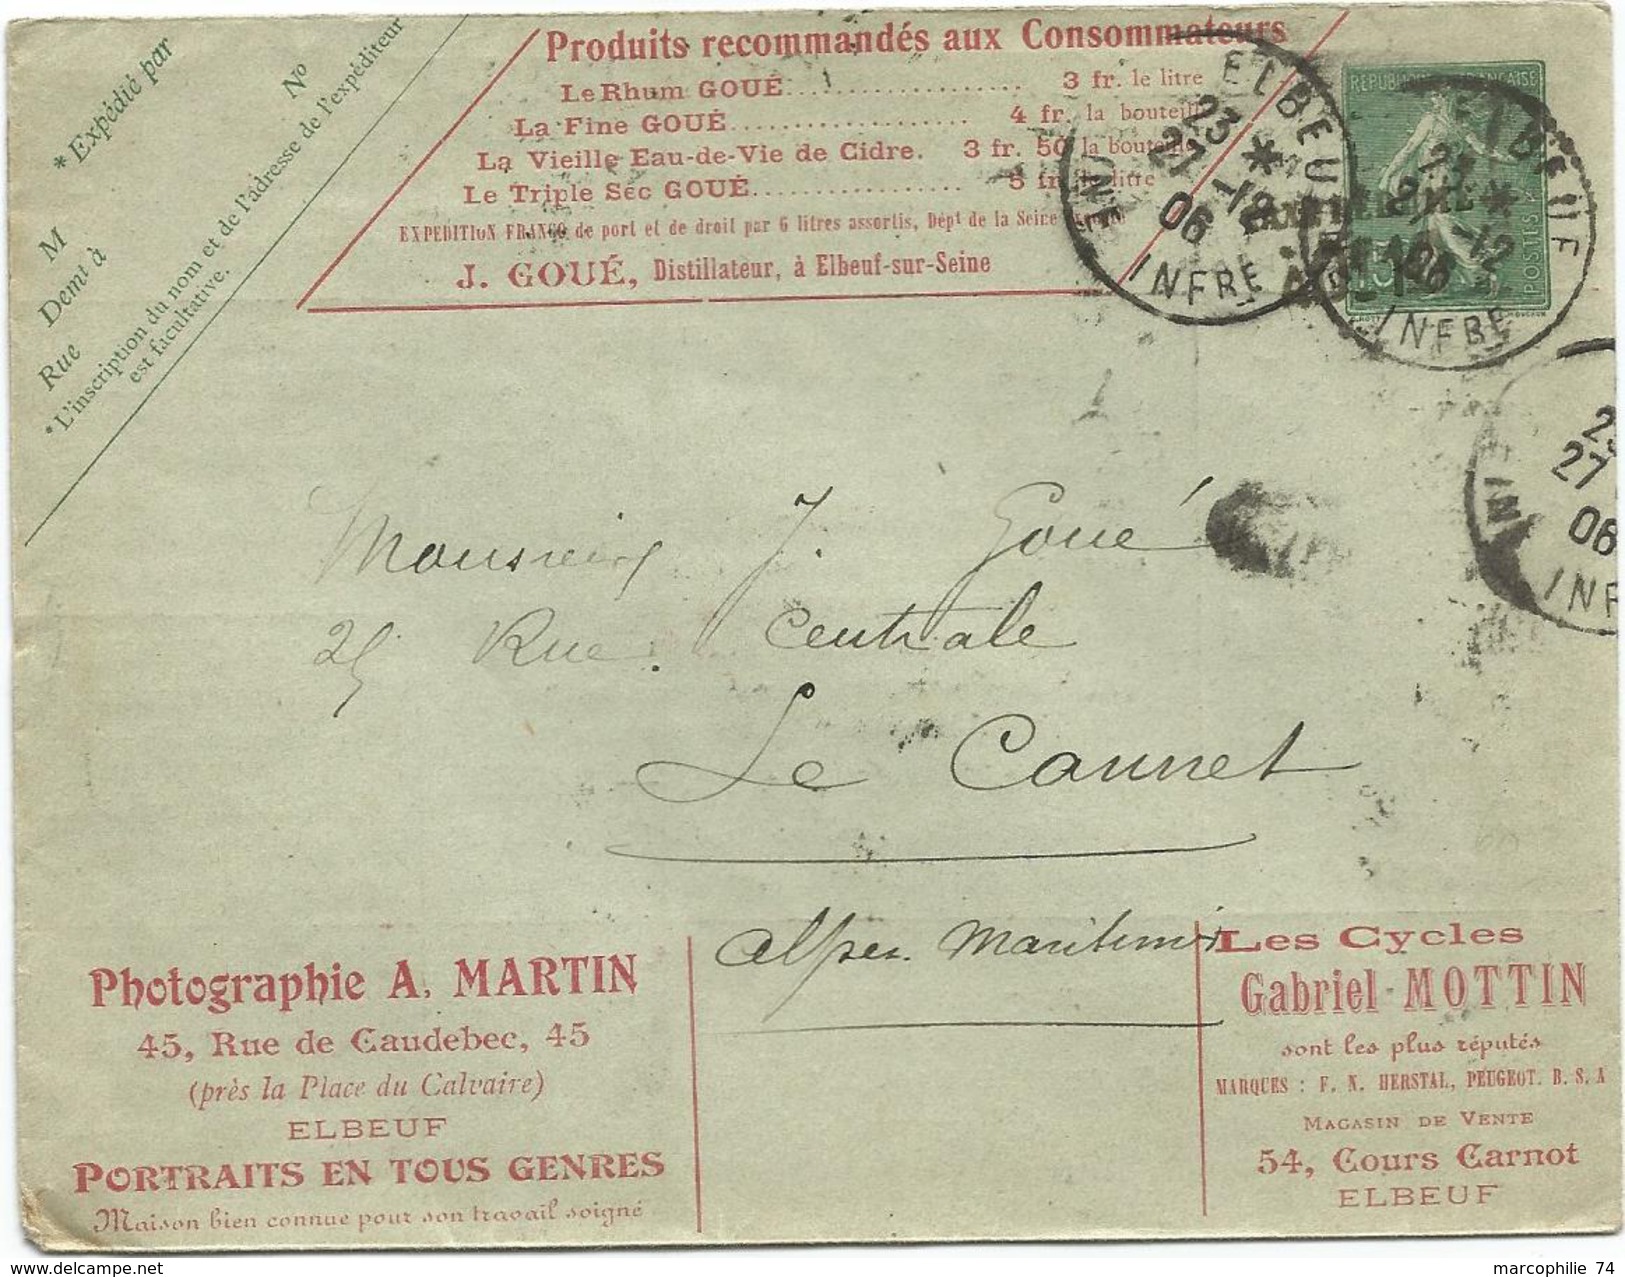 * Expédié par
N°
M
Demt à
Rue
*L'inscription du nom et de l'adresse de l'expéditeur
est facultative.
Produits recommandés aux Consommateurs
Le Rhum GOUÉ........................ 3 fr. le litre
La Fine GOUÉ........................ 4 fr. la bouteille
La Vieille Eau-de-Vie de Cidre. 3 fr. 50 la bouteille
Le Triple Sec GOUÉ.................. 5 fr. le litre
EXPEDITION FRANCO de port et de droit par 6 litres assortis, Dépt de la Seine
J. GOUÉ, Distillateur, à Elbeuf-sur-Seine
REPUBLIQUE FRANÇAISE
POSTES
ELBEUF
23 *
27 -12
06
INFRE
ELBEUF
23 *
27 -12
06
INFRE
27
06
INF
Monsieur J. Goué
25 Rue Centrale
Le Cannet
Alpes Maritimes
Photographie A. MARTIN
45, Rue de Caudebec, 45
(près la Place du Calvaire)
ELBEUF
PORTRAITS EN TOUS GENRES
Maison bien connue pour son travail soigné
Les Cycles
Gabriel MOTTIN
sont les plus réputés
MARQUES : F. N. HERSTAL, PEUGEOT. B. S. A
MAGASIN DE VENTE
54, Cours Carnot
ELBEUF
marcophilie 74